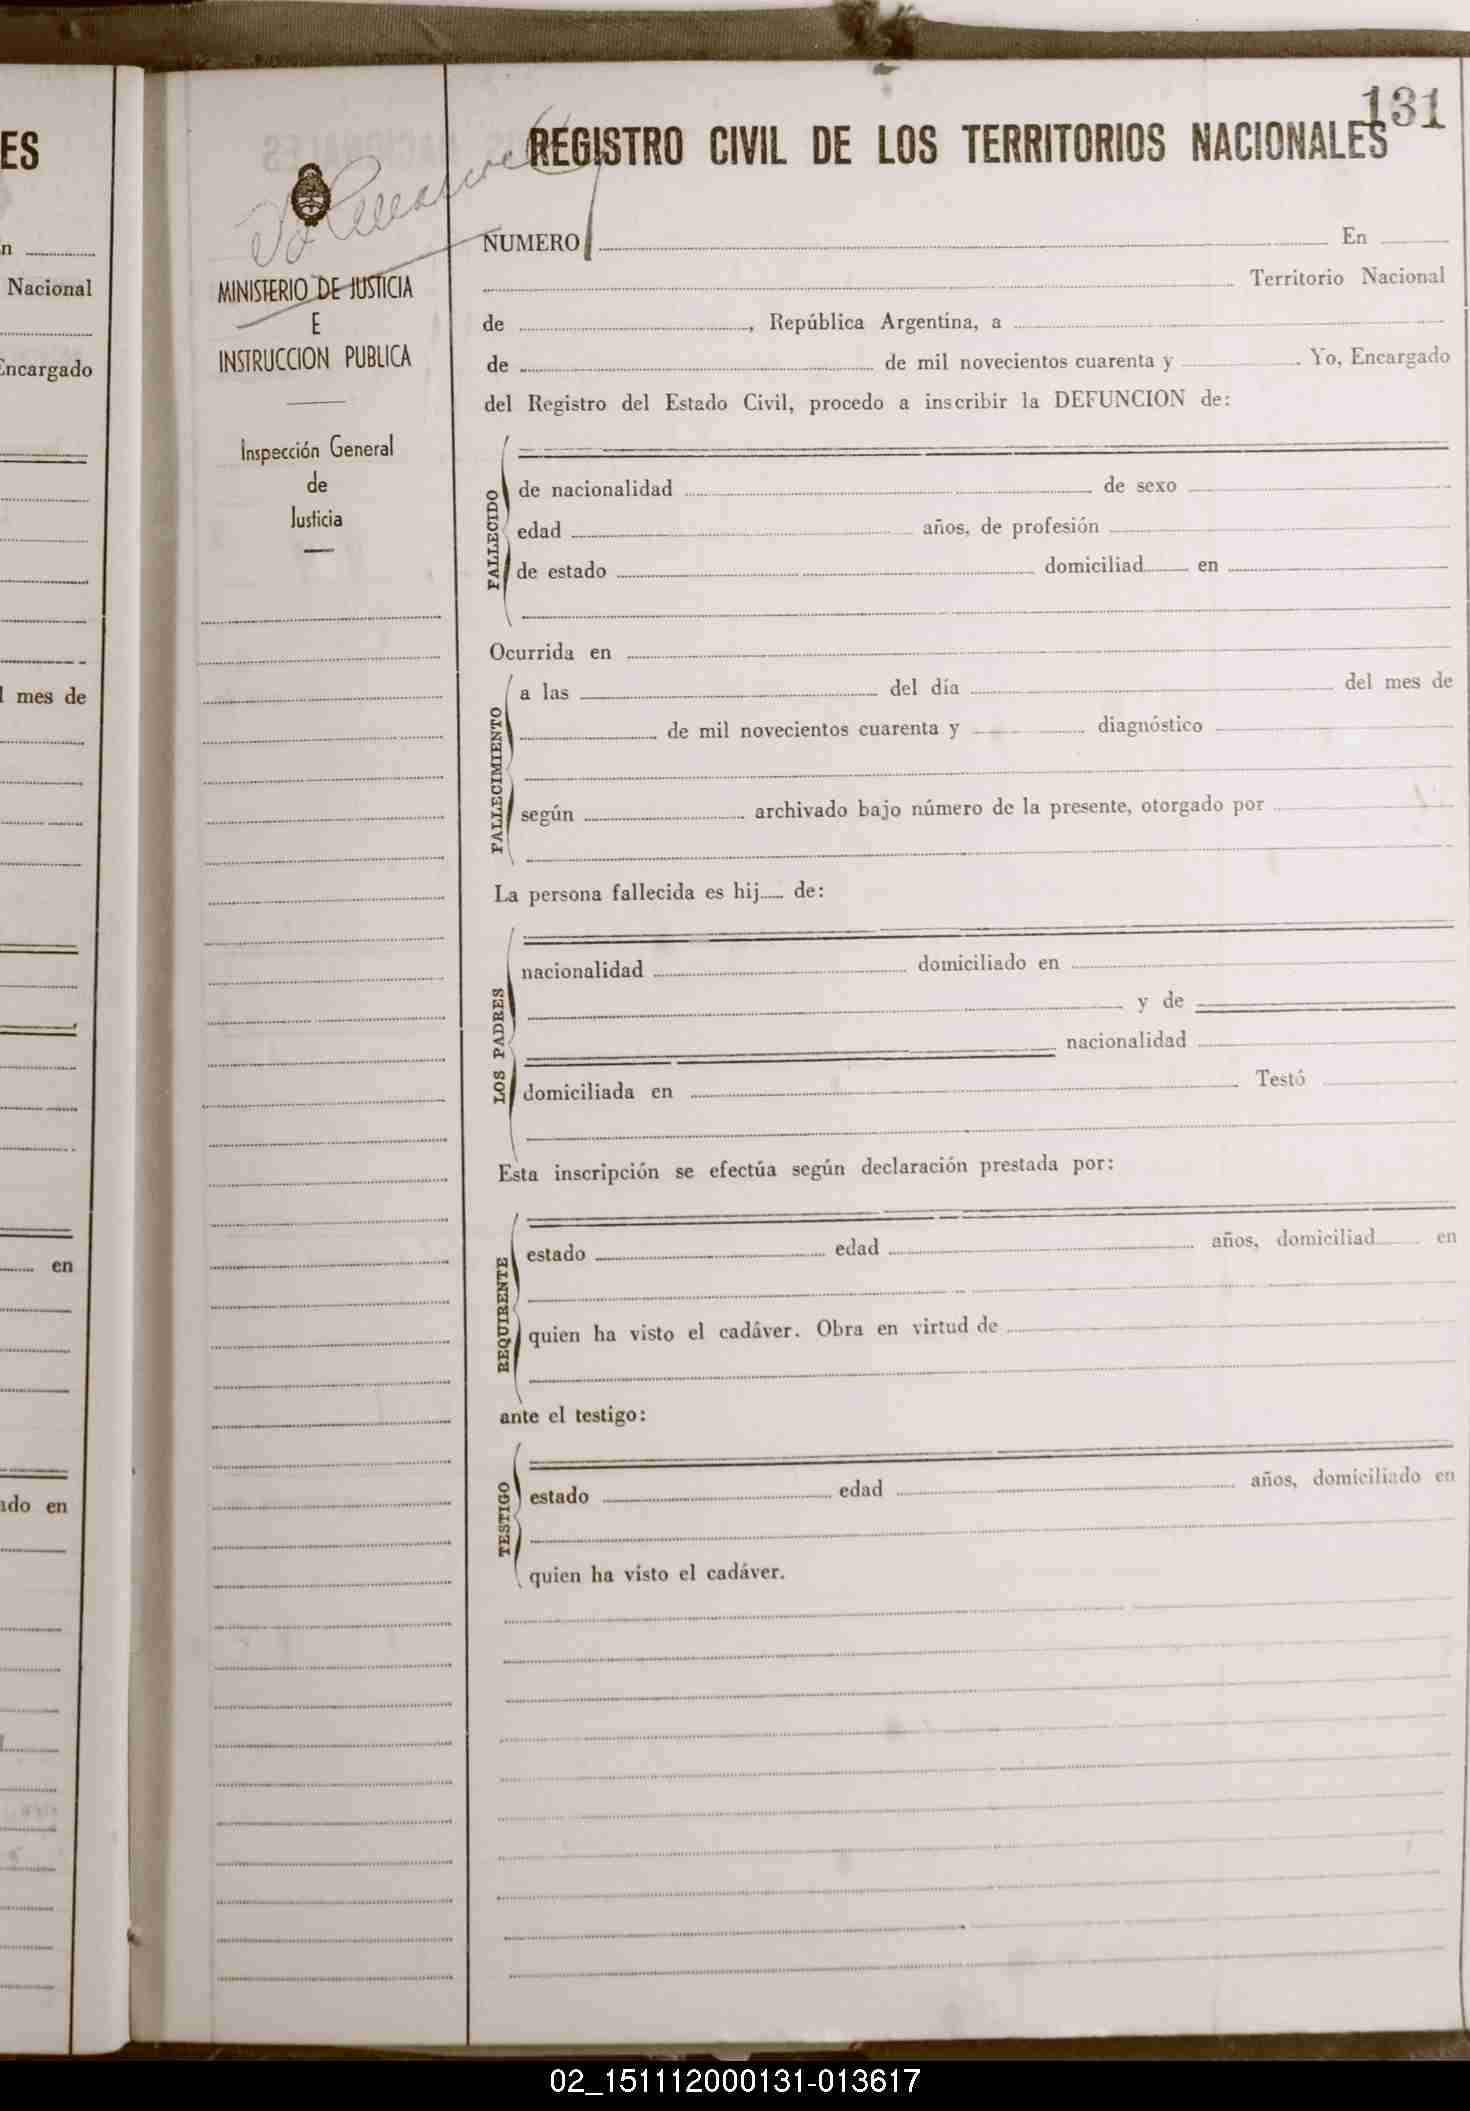 ES
n
Nacional
Encargado
l mes de
en
ado en
131
REGISTRO CIVIL DE LOS TERRITORIOS NACIONALES
MINISTERIO DE JUSTICIA
E
INSTRUCCION PUBLICA
Inspección General
de
Justicia
NUMERO En
Territorio Nacional
de , República Argentina, a
de de mil novecientos cuarenta y . Yo, Encargado
del Registro del Estado Civil, procedo a inscribir la DEFUNCION de:
FALLECIDO
de nacionalidad de sexo
edad años, de profesión
de estado domiciliad en
Ocurrida en
FALLECIMIENTO
a las del día del mes de
de mil novecientos cuarenta y diagnóstico
según archivado bajo número de la presente, otorgado por
La persona fallecida es hij de:
LOS PADRES
nacionalidad domiciliado en
y de
nacionalidad
domiciliada en Testó
Esta inscripción se efectúa según declaración prestada por:
REQUIRENTE
estado edad años, domiciliad en
quien ha visto el cadáver. Obra en virtud de
ante el testigo:
TESTIGO
estado edad años, domiciliado en
quien ha visto el cadáver.
02_151112000131-013617